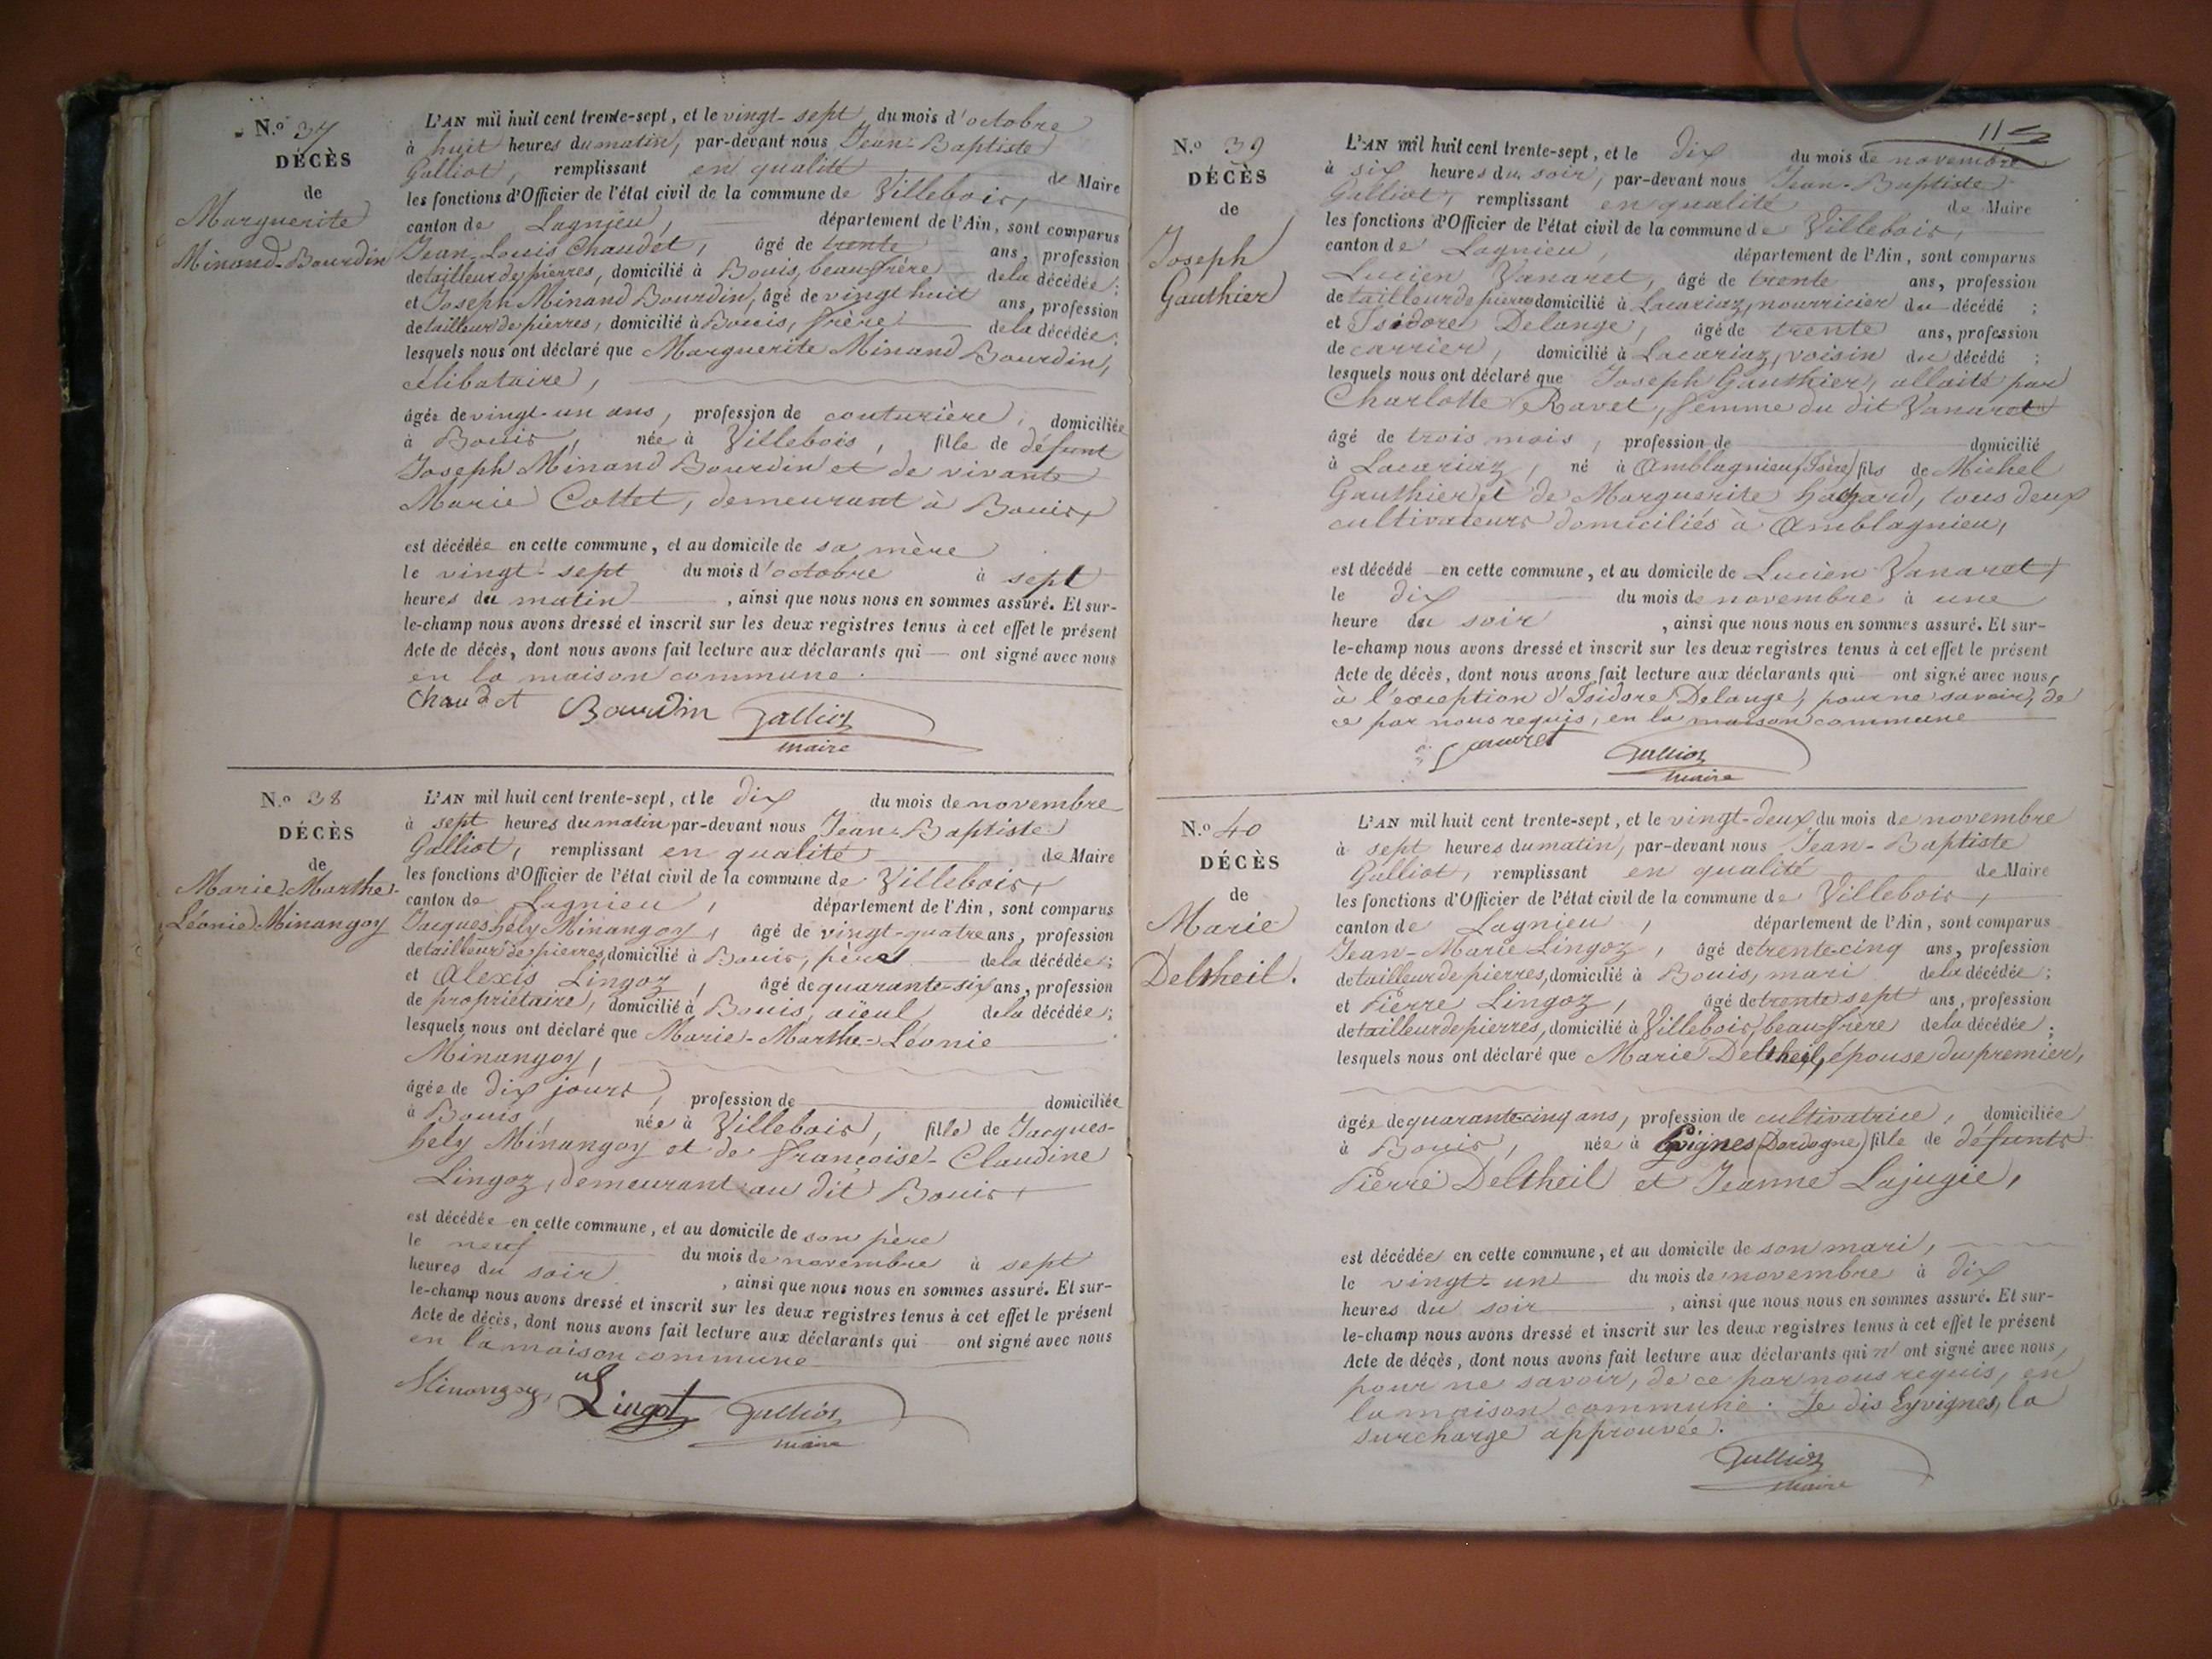 N.º 37
DÉCÈS
de
Marguerite
Minand-Bourdin
L'AN mil huit cent trente-sept, et le vingt-sept du mois d'octobre
à huit heures du matin, par-devant nous Jean-Baptiste
Galliot, remplissant en qualité de Maire
les fonctions d'Officier de l'état civil de la commune de Villebois,
canton de Lagnieu, département de l'Ain, sont comparus
Jean-Louis Chaudet, âgé de trente ans, profession
de tailleur de pierres, domicilié à Bouis, beau-frère de la décédée;
et Joseph Minand Bourdin, âgé de vingt huit ans, profession
de tailleur de pierres, domicilié à Bouis, frère de la décédée;
lesquels nous ont déclaré que Marguerite Minand Bourdin,
célibataire,
âgée de vingt-un ans, profession de couturière, domiciliée
à Bouis, née à Villebois, fille de défunt
Joseph Minand Bourdin et de vivante
Marie Cottet, demeurant à Bouis,
est décédée en cette commune, et au domicile de sa mère
le vingt-sept du mois d'octobre à sept
heures du matin, ainsi que nous nous en sommes assuré. Et sur-
le-champ nous avons dressé et inscrit sur les deux registres tenus à cet effet le présent
Acte de décès, dont nous avons fait lecture aux déclarants qui — ont signé avec nous
en la maison commune.
Chaudet Bourdin Galliot
maire
N.º 38
DÉCÈS
de
Marie-Marthe-
Léonie Minangoy
L'AN mil huit cent trente-sept, et le dix du mois de novembre
à sept heures du matin par-devant nous Jean-Baptiste
Galliot, remplissant en qualité de Maire
les fonctions d'Officier de l'état civil de la commune de Villebois,
canton de Lagnieu, département de l'Ain, sont comparus
Jacques hély Minangoy, âgé de vingt-quatre ans, profession
de tailleur de pierres, domicilié à Bouis, père de la décédée;
et Alexis Lingoz, âgé de quarante-six ans, profession
de propriétaire, domicilié à Bouis, aïeul de la décédée;
lesquels nous ont déclaré que Marie-Marthe-Léonie
Minangoy,
âgée de dix jours, profession de domiciliée
à Bouis, née à Villebois, fille de Jacques-
hely Minangoy et de Françoise-Claudine
Lingoz, demeurant au dit Bouis,
est décédée en cette commune, et au domicile de son père
le neuf du mois de novembre à sept
heures du soir, ainsi que nous nous en sommes assuré. Et sur-
le-champ nous avons dressé et inscrit sur les deux registres tenus à cet effet le présent
Acte de décès, dont nous avons fait lecture aux déclarants qui — ont signé avec nous
en la maison commune
Minangoy Lingot Galliot
maire
115
N.º 39
DÉCÈS
de
Joseph
Gauthier
L'AN mil huit cent trente-sept, et le dix du mois de novembre
à six heures du soir, par-devant nous Jean-Baptiste
Galliot, remplissant en qualité de Maire
les fonctions d'Officier de l'état civil de la commune de Villebois,
canton de Lagnieu, département de l'Ain, sont comparus
Lucien Vanaret, âgé de trente ans, profession
de tailleur de pierres domicilié à Lacariaz, nourricier du décédé;
et Isidore Delange, âgé de trente ans, profession
de carrier, domicilié à Lacariaz, voisin du décédé;
lesquels nous ont déclaré que Joseph Gauthier, allaité par
Charlotte Ravet, femme du dit Vanaret
âgé de trois mois, profession de domicilié
à Lacariaz, né à Amblagnieu (Isère) fils de Michel
Gauthier et de Marguerite hagard, tous deux
cultivateurs domiciliés à Amblagnieu,
est décédé en cette commune, et au domicile de Lucien Vanaret,
le dix du mois de novembre à une
heure du soir, ainsi que nous nous en sommes assuré. Et sur-
le-champ nous avons dressé et inscrit sur les deux registres tenus à cet effet le présent
Acte de décès, dont nous avons fait lecture aux déclarants qui — ont signé avec nous,
à l'exception d'Isidore Delange, pour ne savoir, de
ce par nous requis, en la maison commune
Vanaret Galliot
maire
N.º 40
DÉCÈS
de
Marie
Deltheil.
L'AN mil huit cent trente-sept, et le vingt-deux du mois de novembre
à sept heures du matin, par-devant nous Jean-Baptiste
Galliot, remplissant en qualité de Maire
les fonctions d'Officier de l'état civil de la commune de Villebois,
canton de Lagnieu, département de l'Ain, sont comparus
Jean-Marie Lingoz, âgé de trente cinq ans, profession
de tailleur de pierres, domicilié à Bouis, mari de la décédée;
et Pierre Lingoz, âgé de trente sept ans, profession
de tailleur de pierres, domicilié à Villebois, beau-frère de la décédée;
lesquels nous ont déclaré que Marie Deltheil, épouse du premier,
âgée de quarante-cinq ans, profession de cultivatrice, domiciliée
à Bouis, née à Eyvignes (Dordogne) fille de défunts
Pierre Deltheil et Jeanne Lajugie,
est décédée en cette commune, et au domicile de son mari,
le vingt-un du mois de novembre à dix
heures du soir, ainsi que nous nous en sommes assuré. Et sur-
le-champ nous avons dressé et inscrit sur les deux registres tenus à cet effet le présent
Acte de décès, dont nous avons fait lecture aux déclarants qui n'ont signé avec nous,
pour ne savoir, de ce par nous requis, en
la maison commune. Je dis Eyvignes, la
surcharge approuvée.
Galliot
maire